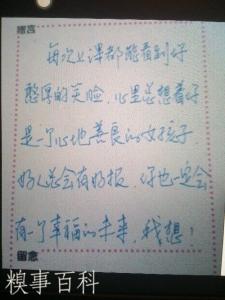 留言
每次上课都能看到你
憨厚的笑脸，心里总想着你
是一个心地善良的女孩子
好人总会有好报，你也一定会
有一个幸福的未来，我想！
留念
糗事百科